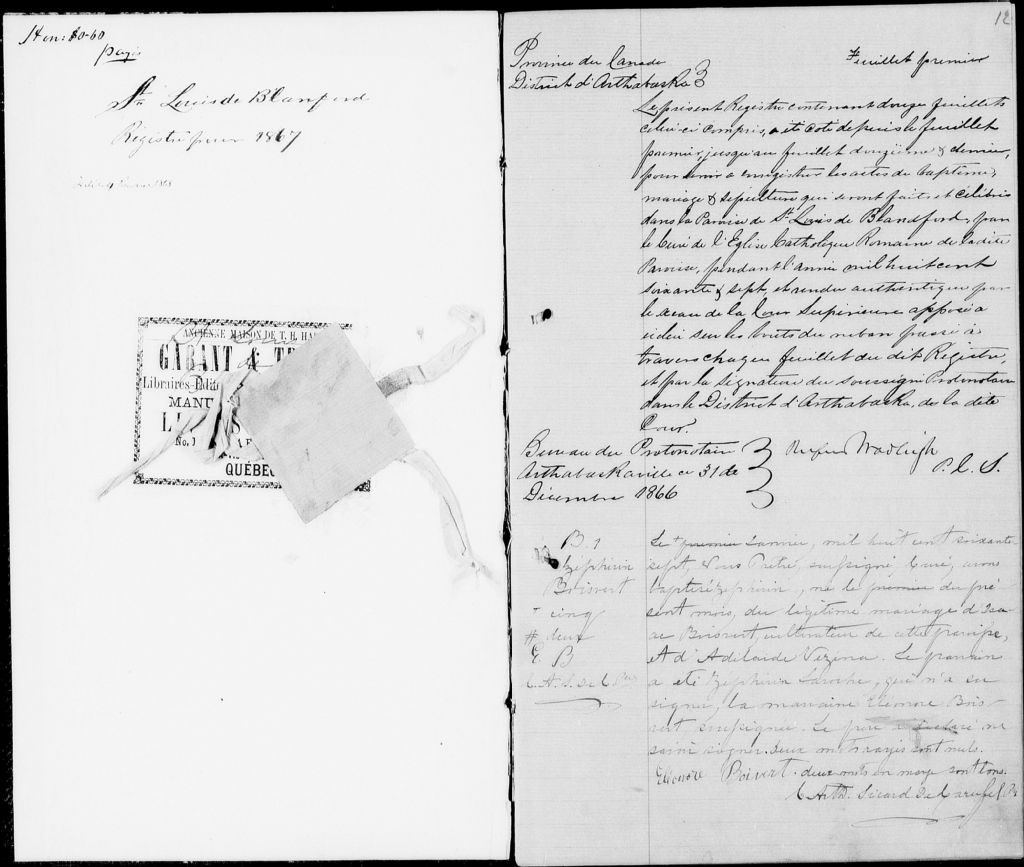 Hon: $0-60
payé
St Louis de Blanford
Régistre pour 1867
1868
ANCIENNE MAISON DE T. H. HA
GARANT & T
Libraires-Edit
MANU
No. 1
QUÉBEC
12
Province du Canada
District d'Arthabaska
Feuillet premier
Le présent Registre contenant douze feuillets
celui-ci compris, a été coté depuis le feuillet
premier, jusqu'au feuillet douzième & dernier,
pour servir à enregistrer les actes de baptême,
mariage & sépulture qui seront faits et célébrés
dans la Paroisse de St Louis de Blandford, par
le Curé de l'Eglise Catholique Romaine de la dite
Paroisse, pendant l'année mil huit cent
soixante & sept, et rendu authentique par
le sceau de la Cour Supérieure apposé à
icelui sur les bouts du ruban passé à
travers chaque feuillet du dit Registre,
et par la signature du soussigné Protonotaire
dans le District d'Arthabaska, de la dite
Cour.
Bureau du Protonotaire
Arthabaskaville ce 31 de
Décembre 1866
Rufus Wadleigh
P. C. S.
B. 1
Zéphirin
Boisvert
+ cinq
# deux
E. B
C. A. S. De C Ptre
Le + premier Janvier, mil huit cent soixante
sept, Nous Prêtre, soussigné, Curé, avons
baptisé Zéphirin, né le premier du pré
sent mois, du légitime mariage d'Isa
ac Boisvert, cultivateur de cette paroisse,
et d'Adélaïde Vézina. Le parrain
a été Zéphirin Laroche, qui n'a su
signer, la marraine Eléonore Bois
vert soussignée. Le père a déclaré ne
savoir signer. Deux mots rayés sont nuls.
Eléonore Boivert. deux mots en marge sont bons.
C. Arth. Sicard De Carufel Ptre